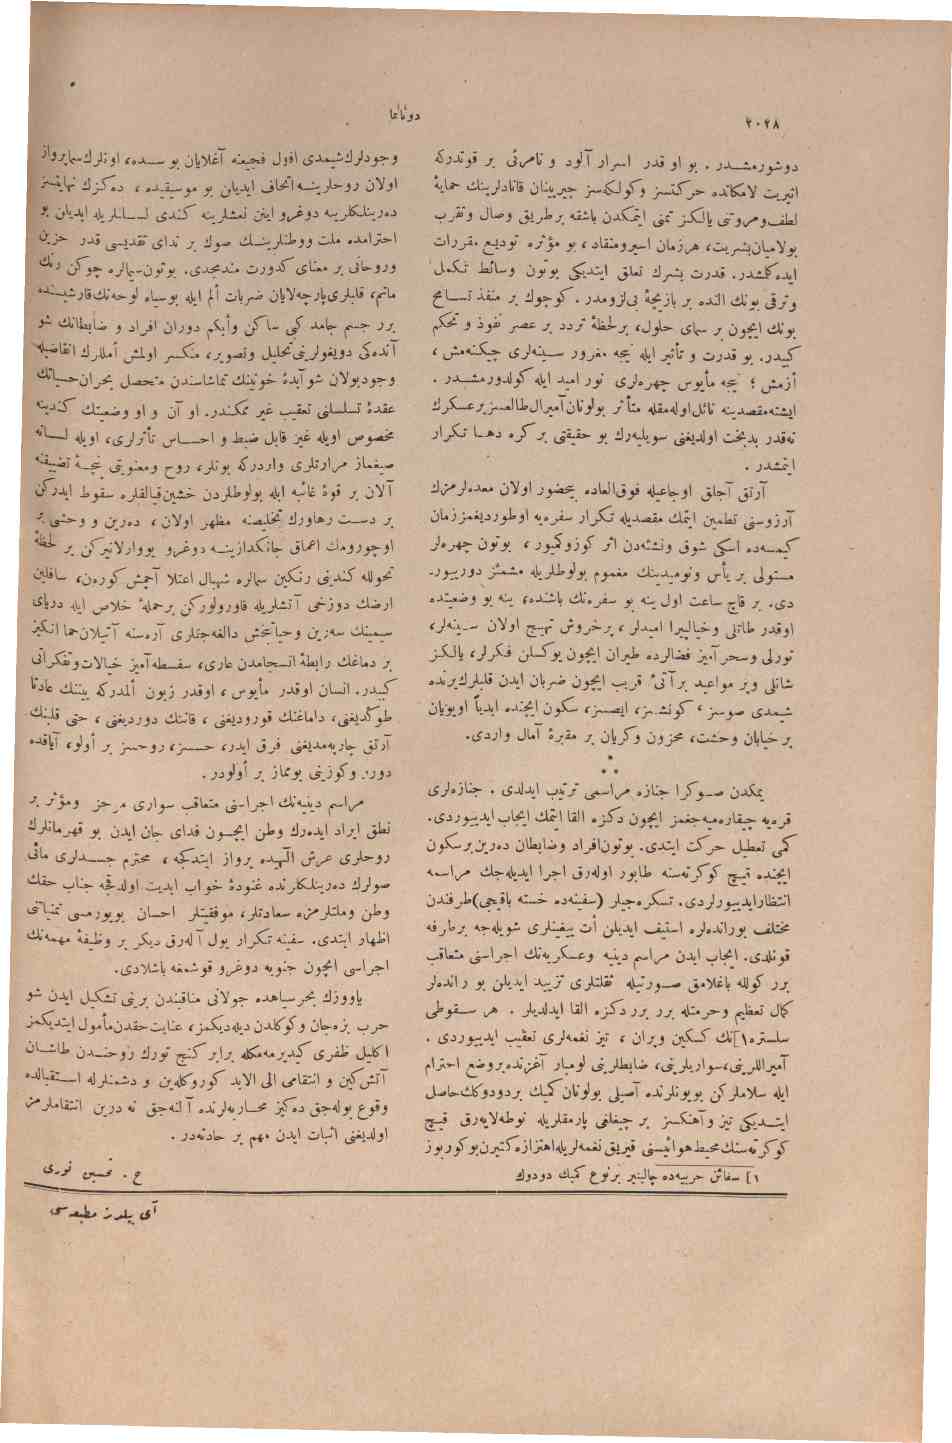 ۲۰۲۸
دونانما
دوشورمشدر . بو او قدر اسرار آلود و نامرئی بر قوتدرکه
اثیریت لامکانده حرکتسز وکولکه‌سز جیربینان قانادلرینك حمایهٔ
لطف‌ومروتی یالکز تمنی ایتمکدن باشقه برطریق وصال وتقرب
بولامیان‌بشریت، هرزمان اسیرومنقاد، بو مؤثره تودیع مقررات
ایده‌کلمشدر. قدرت بشرك تعلق ایتدیکی بوتون وسائط تکمل
وترقی بونك النده بر بازیچهٔ بی‌لزومدر . کوچوك بر منفذ تسامح
بونك ایچون بر سمای حلول، برلحظهٔ تردد بر عصر نفوذ و تحکم
کبیدر. بو قدرت و تأثیر ایله نیجه مغرور سینه‌لری چیکنه‌مش ،
أزمش ؛ نیجه مأیوس چهره‌لری نور امید ایله کولدورمشدر .
ایشته‌مقصدینه نائل‌اوله‌مقله متأثر بولونان‌آمیرال‌طالعسزبرعسکرك
نه‌قدر بدبخت اولدیغنی سویلیه‌رك بو حقیقتی برکره دها تکرار
ایتمشدر .
آرتق آجلق اوجاعیله فوق‌العاده بیحضور اولان معده‌لرمزك
آرزوسنی تطمین ایتمك مقصدیله تکرار سفره‌یه اوطوردیغمززمان
کیمسه‌ده اسکی شوق ونشئه‌دن اثر کوزوکمیور ، بوتون چهره‌لر
مستولی بر یأس ونومیدینك مغموم بولوطلریله مشمئز دوریبور-
دی. بر قاچ ساعت اول ینه بو سفره‌نك باشنده، ینه بو وضعیتده
اوقدر طاتلی وخیالپیرا امیدلر ، پرخروش تهیج اولان سینه‌لر،
تورلی وسحر آمیز فضالرده طیران ایچون یوکسلن فکرلر، یالکز
شانلی وپر مواعید برآتیٔ قریب ایچون ضربان ایدن قلبلرك‌یرنده
شیمدی صوسز ، کونشسز، ایصسز، سکون ایچنده ابدیاً اویویان
بر خیابان وحشت، محزون وکریان بر مقبرهٔ آمال واردی.
* * *
یمکدن صوکرا جنازه مراسمی ترتیب ایدلدی . جنازه‌لری
قره‌یه چیقاره‌میه‌جغمز ایچون دکزه القا ایتمك ایجاب ایدییوردی.
کمی تعطیل حرکت ایتدی. بوتون‌افراد وضابطان ده‌رین‌برسکون
ایچنده قیچ کوکرته‌سنه طابور اوله‌رق اجرا ایدیله‌جك مراسمه
انتظارایدییورلردی. تسکره‌جیلر (سفینه‌ده خسته باقیجی)طرفندن
مختلف بوراندەلره استیف ایدیلن أت ییغینلری شویله‌جه برطرفه
قونلدی. ایجاب ایدن مراسم دینیه وعسکریه‌نك اجراسنی متعاقب
برر کولله باغلامق صورتیله ثقلتلری تزیید ایدیلن بو راندەلر
کمال تعظیم وحرمتله برر برر دکزه القا ایدلدیلر . هر سقوطی
سلستره۱]نك کسکین ویران ، تیز نغمه‌لری تعقیب ایدییوردی .
آمیراللرینی،سواریلرینی، ضابطلرینی لومبار آغزنده‌بروضع احترام
ایله سلاملرکن بویونلرنده آصیلی بولونان کمیك بردودوکك‌حاصل
ایتدیکی تیز وآهنکسز بر چیغلغی پارمقلریله نوطه‌لایه‌رق قیچ
کوکرته‌سنك‌محیط‌هوائیسنی قیریق نغمه‌لریله‌اهتزازه‌کتیرن‌بوکوربوز
۱] سفائن حربیه‌ده چالینیر برنوع کمیك دودوك
وجودلرك‌شیمدی افول فجیعنه آغلایان بو سده، اونلرك‌سماپرواز
اولان روحلرینه‌اتحاف ایدیلن بو موسیقیده ، ده‌کزك نهایتسز
ده‌رینلکلرینه دوغرو اینن نعشلرینه کندی لسانلریله ایدیلن بو
احترامده ملت ووطنلرینك صوك بر ندای تقدیسی قدر حزین
وروحانی بر معنای کدورت مندمجدی. بوتون‌سیمالره چوکن رنك
ماتم، قلبلری‌پارچه‌لایان ضربات ألم ایله بوسیاه لوحه‌نك‌قارشیسنده
برر جسم جامد کبی ساکن وأبکم دوران افراد و ضابطانك شو
آنده‌کی دویغولرینی‌تحلیل وتصویر، منکسر اولمش أمللرك انقاضیله
وجودبولان شوآبدهٔ خونینك تماشاسندن متحصل بحران‌حسیاتك
عقدهٔ تسلسلنی تعقیب غیر ممکندر. او آن و او وضعیتك کندینه
مخصوص اویله غیر قابل ضبط و احساس تأثرلری، اویله لسانه
صیغماز مرارتلری واردرکه بونلر، روح ومعنویتی پنجهٔ تضییقنه
آلان بر قوهٔ غائبه ایله بولوطلردن خشین‌قیالقلره سقوط ایدرکن
بر دست رهاورك تخلیصنه مظهر اولان ، ده‌رین و وحشی بر
اوچورومك اعماق جانکدازینه دوغرو یووارلانیرکن بر لحظهٔ
تحولله کندینی رنکین سمالره شهبال اعتلا آچمش کوره‌ن، سافلین
ارضك دوزخی آتشلریله قاورولورکن برحملهٔ خلاص ایله دریای
سیمینك سه‌رین وحیاتبخش دالغه‌جقلری آره‌سنه آتیلان‌حما انکیز
بر دماغك رابطهٔ انسجامدن عاری، سفسطه‌آمیز خیالات‌وتفکراتی
کبیدر. انسان اوقدر مأیوس ، اوقدر زبون ألمدرکه بیننك عادتا
طوکدیغنی، داماغنك قورودیغنی ، قاننك دوردیغنی ، حتی قلبنك
آرتق چارپه‌مدیغنی فرق ایدر، حسسز، روحسز بر أولو، آیاقده
دورر وکوزینی یومماز بر أولودر.
مراسم دینیه‌نك اجراسنی متعاقب سواری موجز ومؤثر بر
نطق ایراد ایده‌رك وطن ایچون فدای جان ایدن بو قهرمانلرك
روحلری عرش الٓهیده پرواز ایتدکجه ، محترم جسدلری مائی
صولرك ده‌رینلکلرنده غنودهٔ خواب ابدیت اولدقجه جناب حقك
وطن وملتلرمزه سعادتلر، موفقیتلر احسان بویورمسی تمنیاتنی
اظهار ایتدی. سفینه تکرار یول آله‌رق دیکر بر وظیفهٔ مهمه‌نك
اجراسی ایچون جنوبه دوغرو قوشمغه باشلادی.
یاووزك بحرسیاهده جولانی مناقبندن برینی تشکیل ایدن شو
حرب بزه‌جان وکوکلدن دیله‌دیکمز، عنایت حقدن‌مأمول ایتدیکمز
اکلیل ظفری کیدیرمه‌مکله برابر کنج تورك روحندن طاشان
آتش‌کین و انتقامی الی الابد کوروکله‌ین و دشمنلرله استقبالده
وقوع بوله‌جق ده‌کیز محاربه‌لرنده آلنه‌جق نه درین انتقاملرمز
اولدیغنی اثبات ایدن مهم بر حادثه‌در .
ح . تحسین نوری
آی ییلدیز مطبعه‌سی